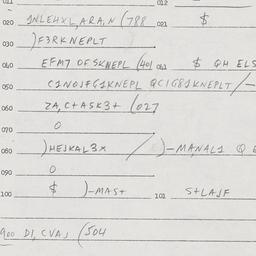 011 012
020 1NLEHXL,ARA,N (788 021 $
030 )F3RKNEPLT
040 EFM7 OF SKNEPL (401 041 $ QH ELS
050 C1NO1FG1KNEPL QC1G81KNEPLT/-
060 ZA,C+ASK3+ (027
070 O
080 )HE1KAL3X / )-MANAL1 Q E
090 O
100 $ )-MAS+ 101 S+LA1F
900 D1,CVA1 (504